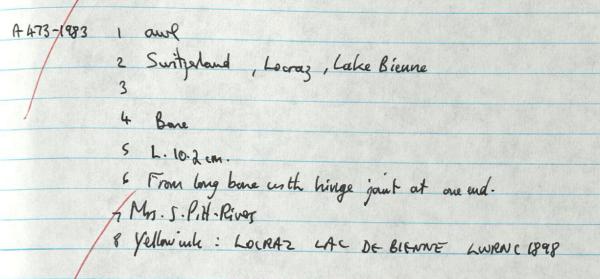 A 473-1983 1 awl
2 Switzerland, Locraz, Lake Bienne
3
4 Bone
5 L. 10.2 cm.
6 From long bone with hinge joint at one end.
7 Mrs. S. Pitt-Rivers
8 Yellow ink: LOCRAZ LAC DE BIENNE LWRNC 1898